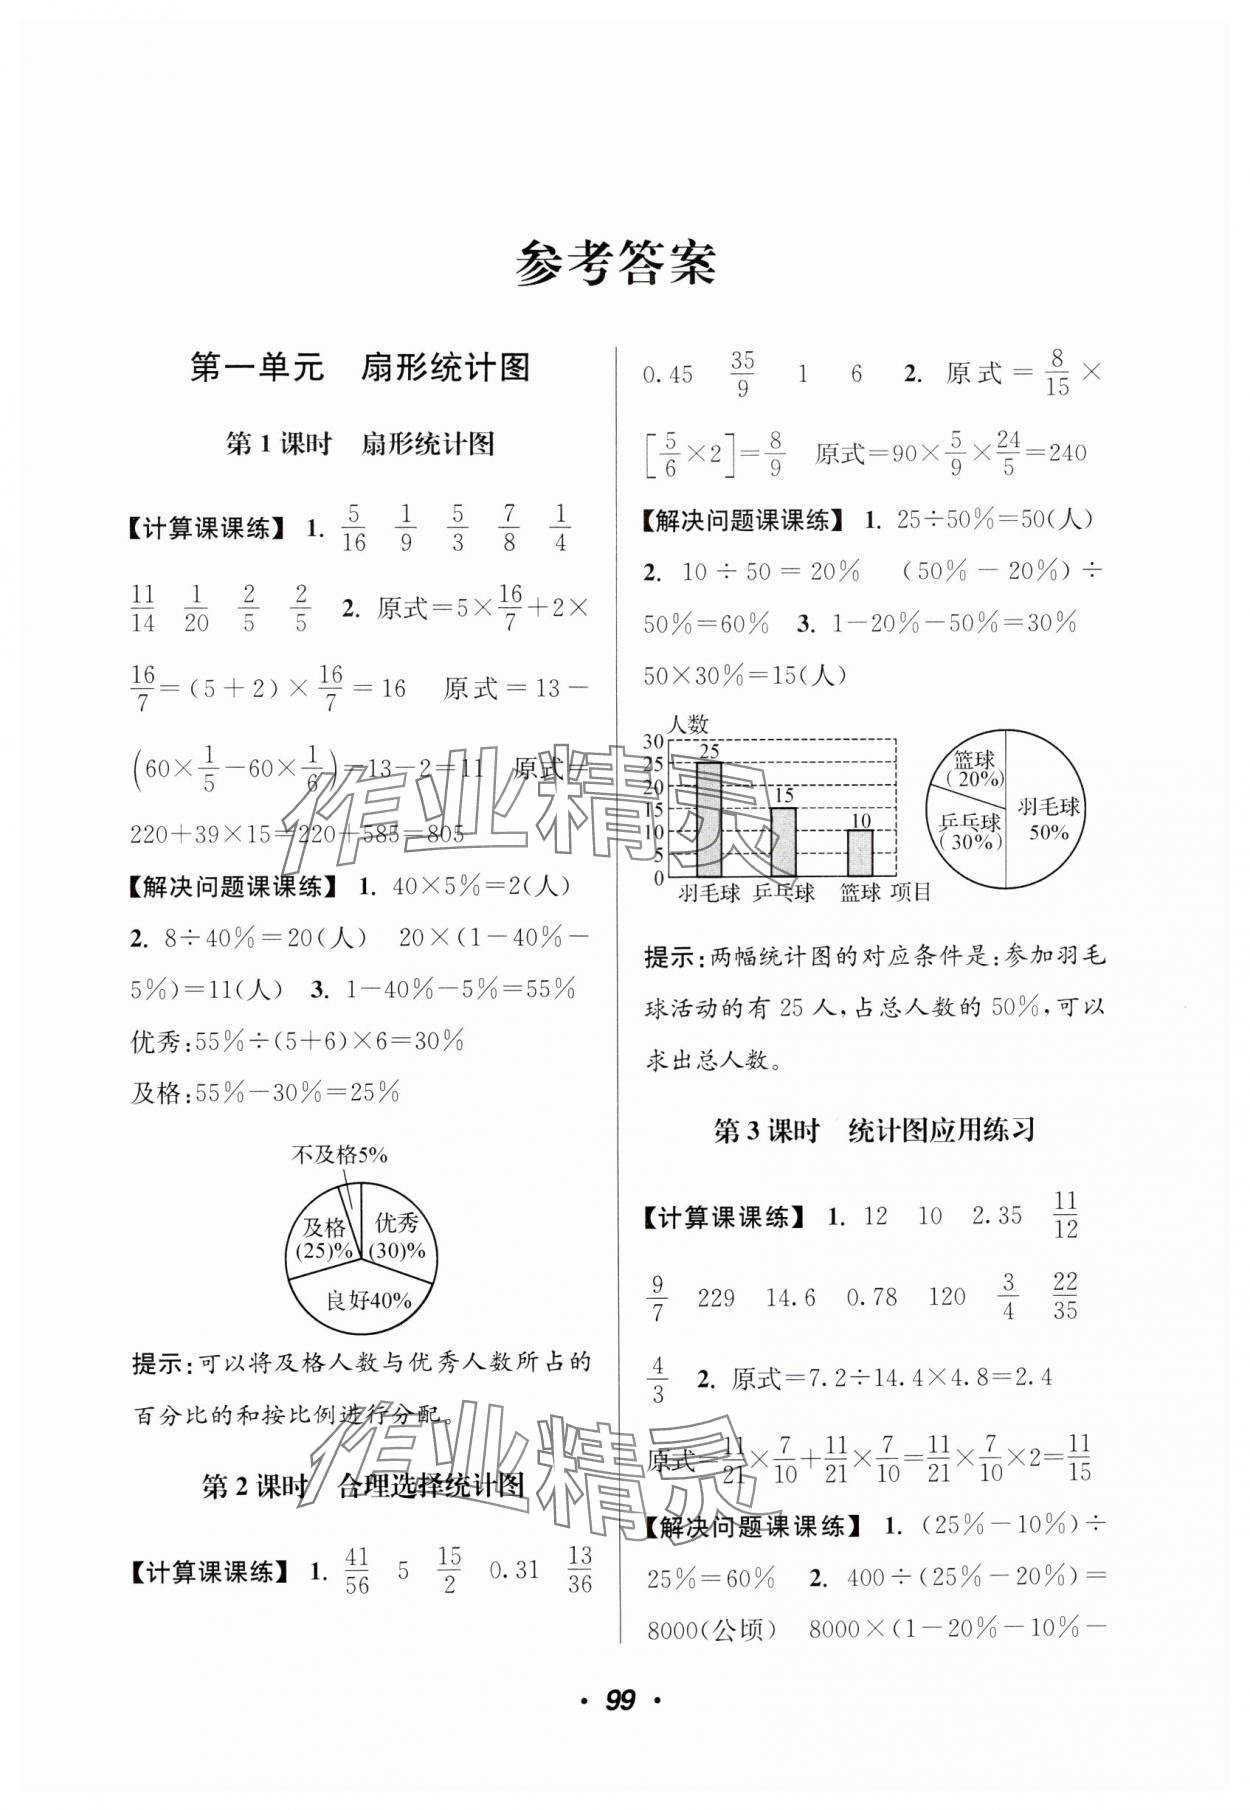 参考答案
第一单元　扇形统计图
第 1 课时　扇形统计图
【计算课课练】 1. 5/16　1/9　5/3　7/8　1/4
11/14　1/20　2/5　2/5　2. 原式=5×16/7+2×
16/7=(5+2)×16/7=16　原式=13-
(60×1/5-60×1/6)=13-2=11　原式=
220+39×15=220+585=805
【解决问题课课练】 1. 40×5%=2(人)
2. 8÷40%=20(人)　20×(1-40%-
5%)=11(人)　3. 1-40%-5%=55%
优秀:55%÷(5+6)×6=30%
及格:55%-30%=25%
不及格5%
及格
(25)%
优秀
(30)%
良好40%
提示:可以将及格人数与优秀人数所占的
百分比的和按比例进行分配。
第 2 课时　合理选择统计图
【计算课课练】 1. 41/56　5　15/2　0.31　13/36
0.45　35/9　1　6　2. 原式=8/15×
[5/6×2]=8/9　原式=90×5/9×24/5=240
【解决问题课课练】 1. 25÷50%=50(人)
2. 10÷50=20%　(50%-20%)÷
50%=60%　3. 1-20%-50%=30%
50×30%=15(人)
人数
30
25
20
15
10
5
0
25
15
10
羽毛球　乒乓球　篮球　项目
篮球
(20%)
乒乓球
(30%)
羽毛球
50%
提示:两幅统计图的对应条件是:参加羽毛
球活动的有 25 人,占总人数的 50%,可以
求出总人数。
第 3 课时　统计图应用练习
【计算课课练】 1. 12　10　2.35　11/12
9/7　229　14.6　0.78　120　3/4　22/35
4/3　2. 原式=7.2÷14.4×4.8=2.4
原式=11/21×7/10+11/21×7/10=11/21×7/10×2=11/15
【解决问题课课练】 1. (25%-10%)÷
25%=60%　2. 400÷(25%-20%)=
8000(公顷)　8000×(1-20%-10%-
· 99 ·
作业精灵
作业精灵